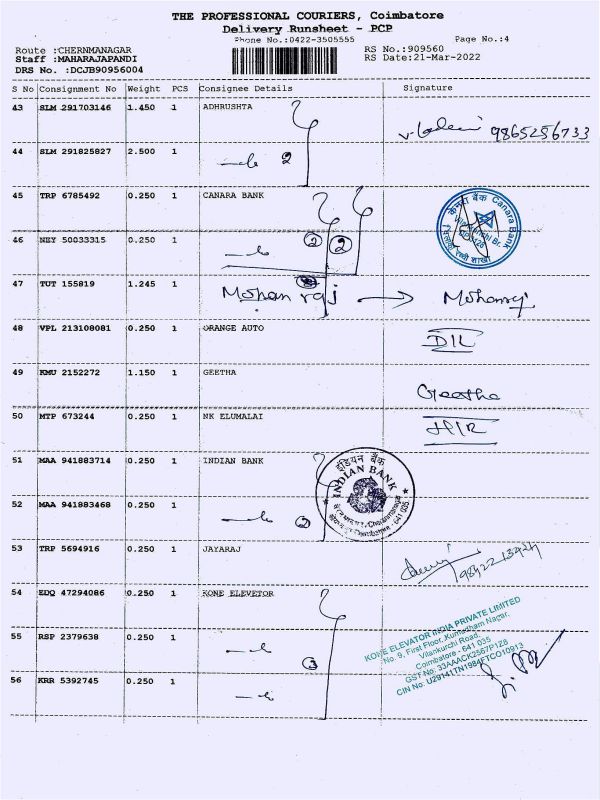 THE PROFESSIONAL COURIERS, Coimbatore
Delivery Runsheet - PCP
Phone No.:0422-3505555 Page No.:4
Route :CHERNMANAGAR RS No.:909560
Staff :MAHARAJAPANDI RS Date:21-Mar-2022
DRS No. :DCJB90956004
S No Consignment No Weight PCS Consignee Details Signature
43 SLM 291703146 1.450 1 ADHRUSHTA
9865256733
44 SLM 291825827 2.500 1 2
45 TRP 6785492 0.250 1 CANARA BANK
केनरा बैंक Canara Bank
46 NEY 50033315 0.250 1 2 2
47 TUT 155819 1.245 1 Mohan raj Mohanraj
48 VPL 213108081 0.250 1 ORANGE AUTO DIL
49 KMU 2152272 1.150 1 GEETHA Geetha
50 MTP 673244 0.250 1 NK ELUMALAI HIR
51 MAA 941883714 0.250 1 INDIAN BANK
इंडियन बैंक
INDIAN BANK
52 MAA 941883468 0.250 1 2
53 TRP 5694916 0.250 1 JAYARAJ
54 EDQ 47294086 0.250 1 KONE ELEVETOR
KONE ELEVATOR INDIA PRIVATE LIMITED
No. 9, First Floor, Kumudham Nagar,
Vilankurchi Road,
Coimbatore - 641 035
GST No: 33AAACK2567P1Z8
CIN No: U29141TN1984FTCO10913
55 RSP 2379638 0.250 1 3
56 KRR 5392745 0.250 1